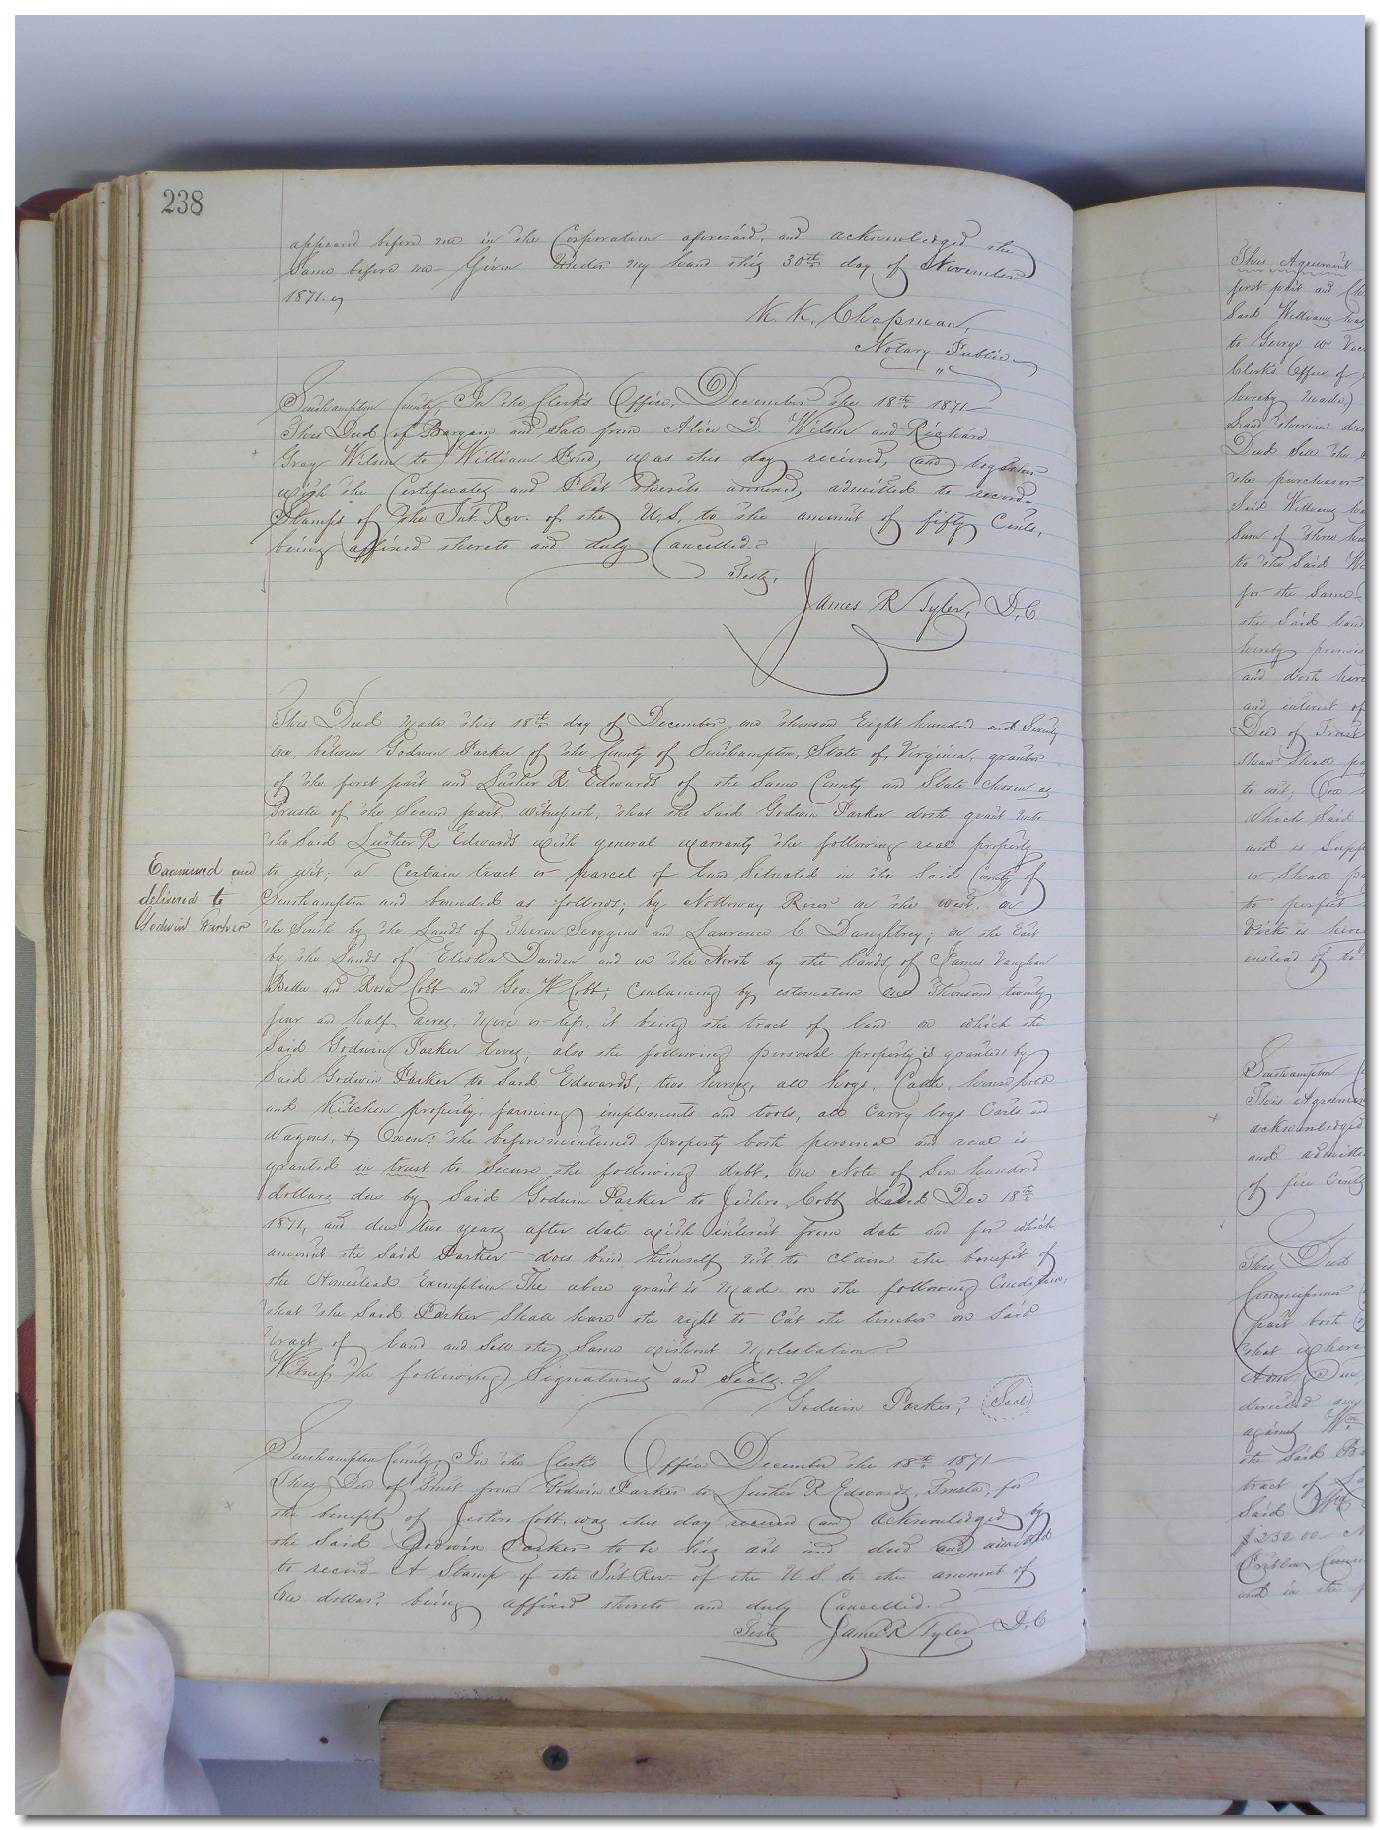 238
appeared before me in the Corporation aforesaid, and acknowledged the
Same before me - Given Under my hand this 30th day of November
1871.
K. K. Chapman,
Notary Public
Southampton County, In the Clerks Office, December the 18th 1871
This Deed of Bargain and Sale from Alice D. Wilson and Richard
Gray Wilson to William Pond, was this day received, and together
with the Certificates and Plat thereto annexed, admitted to record.
Stamps of the Int. Rev. of the U.S. to the amount of fifty Cents,
being affixed thereto and duly Cancelled.
Teste,
James R Tyler, D.C
This Deed Made this 18th day of December, one thousand Eight hundred and Seventy
One between Godwin Parker of the County of Southampton, State of Virginia, grantor
of the first part and Luther R. Edwards of the Same County and State chosen as
Trustee of the Second part, witnesseth, that the Said Godwin Parker doth grant unto
the Said Luther R Edwards with general warranty the following real property
to wit; a Certain tract or parcel of land Situated in the Said County of
Southampton and bounded as follows; by Nottoway River on the west, on
the South by the Lands of Scroggins and Lawrence C. Daughtrey; on the East
by the Lands of Darden and on the North by the lands of James Vaughan
and Rosa Cobb and Geo. W Cobb, Containing by estimation one Thousand twenty
four and half acres, More or less, it being the tract of land on which the
Said Godwin Parker lives, also the following personal property is granted by
Said Godwin Parker to Said Edwards, two horses, all hogs, Cattle, household
and Kitchen property, farming implements and tools, all Carry logs Carts and
Wagons, & Oxen: the beforementioned property both personal and real is
granted in trust to Secure the following debt, One Note of hundred
dollars due by Said Godwin Parker to Cobb dated Dec 18th
1871, and due two years after date with interest from date and for which
amount the Said Parker does bind himself not to claim the benefit of
the Homestead Exemption. The above grant is Made on the following Condition,
that the Said Parker Shall have the right to Cut the timber on Said
tract of land and Sell the Same without Molestation
Witness the following Signatures and Seals.
Godwin Parker, Seal
Southampton County, In the Clerks Office December the 18th 1871
This Deed of Trust from Godwin Parker to Luther R Edwards, Trustee, for
the benefit of Cobb, was this day received and acknowledged by
the Said Godwin Parker to be his act and deed and admitted
to record - A Stamp of the Int Rev. of the U.S. to the amount of
One dollar, being affixed thereto and duly Cancelled.
Teste James R Tyler D.C
Examined and
delivered to
Godwin Parker
This Agreement
first part and
Said William
to George W
Clerks Office of
hereby made,)
Deed
the purchaser
Said William
Sum of three
to the Said
for the Same
the Said land
hereby
and doth
and interest of
Deed of Trust
to wit;
Which Said
and is
or Shall
to perfect
Vick is
instead of
Southampton
This Agreement
acknowledged
and admitted
of five Cents
This Deed
part both
that
directed
against Wm
the Said
tract of
Said
$250.00
and in the